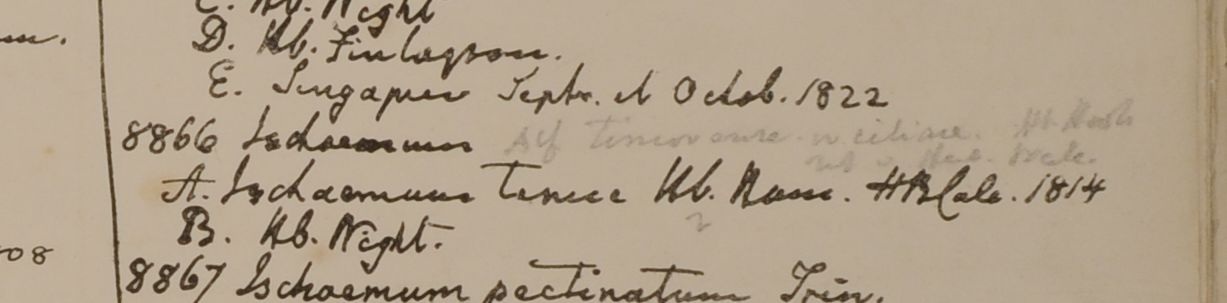 m.
C. Hb. Wight
D. Hb. Finlayson.
E. Singapur Septr. et Octob. 1822
8866 Ischaemum timorense ciliare.
Hb.
A. Ischaemum tenue Hb. Russ. HBCalc. 1814
B. Hb. Wight.
08
8867 Ischaemum pectinatum Trin.